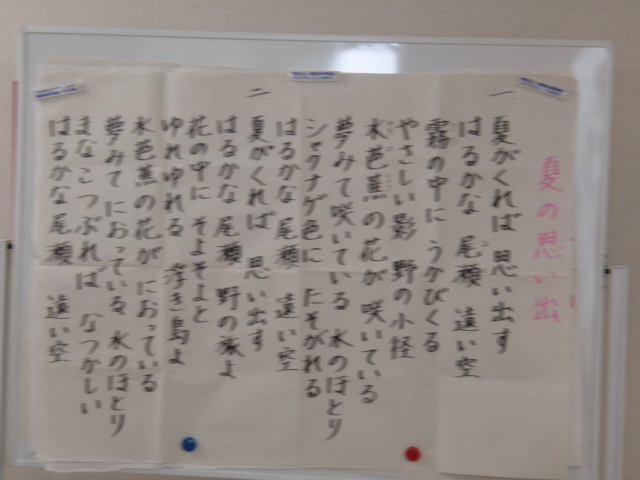 夏の思い出
一
夏がくれば 思い出す
はるかな 尾瀬 遠い空
霧の中に うかびくる
やさしい影 野の小径
水芭蕉の花が 咲いている
夢みて咲いている 水のほとり
シャクナゲ色に たそがれる
はるかな 尾瀬 遠い空
二
夏がくれば 思い出す
はるかな 尾瀬 野の旅よ
花の中に そよそよと
ゆれゆれる 浮き島よ
水芭蕉の花が におっている
夢みてにおっている 水のほとり
まなこつぶれば なつかしい
はるかな 尾瀬 遠い空